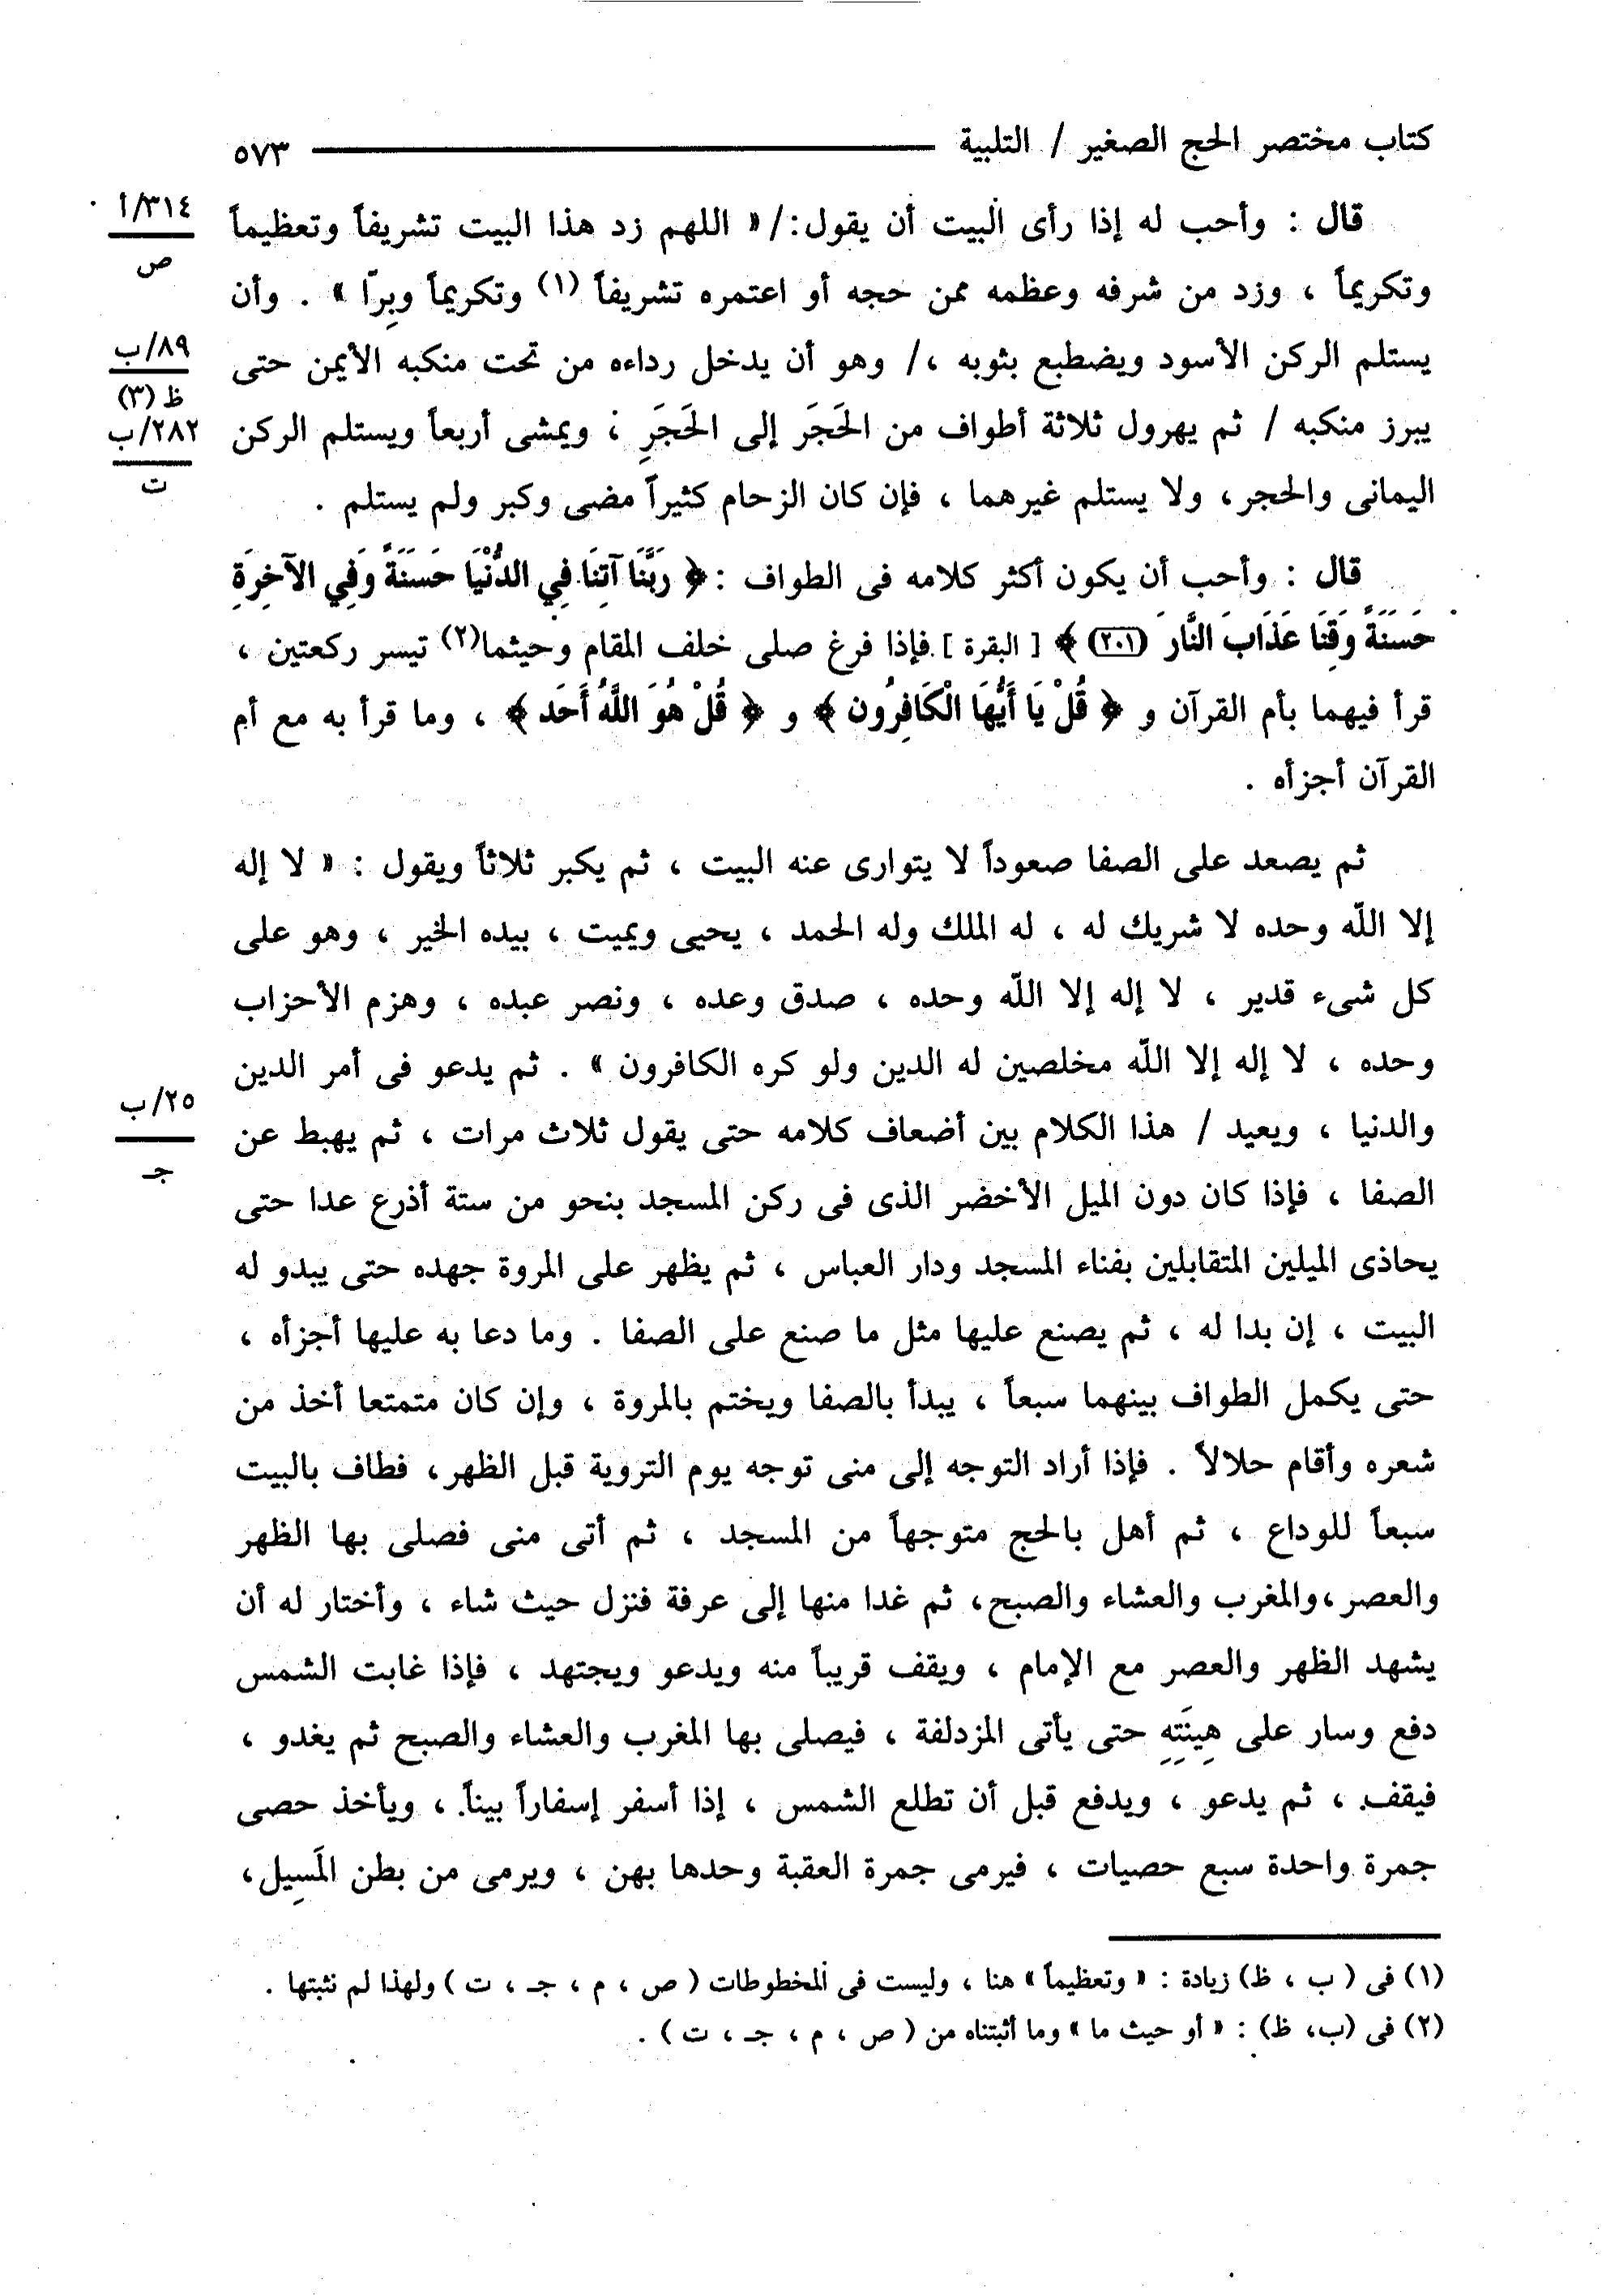 كتاب مختصر الحج الصغير / التلبية ٥٧٣
قال : وأحب له إذا رأى البيت أن يقول:/« اللهم زد هذا البيت تشريفاً وتعظيماً
٣١٤/أ
ص
وتكريماً ، وزد من شرفه وعظمه ممن حجه أو اعتمره تشريفاً (١) وتكريماً وبِرّا » . وأن
يستلم الركن الأسود ويضطبع بثوبه ،/ وهو أن يدخل رداءه من تحت منكبه الأيمن حتى
٨٩/ب
ظ (٣)
يبرز منكبه / ثم يهرول ثلاثة أطواف من الحَجَر إلى الحَجَرِ ؛ ويمشى أربعاً ويستلم الركن
٢٨٢/ب
ت
اليمانى والحجر، ولا يستلم غيرهما ، فإن كان الزحام كثيراً مضى وكبر ولم يستلم .
قال : وأحب أن يكون أكثر كلامه فى الطواف : ﴿ رَبَّنَا آتِنَا فِي الدُّنْيَا حَسَنَةً وَفِي الآخِرَةِ
حَسَنَةً وَقِنَا عَذَابَ النَّارِ (٢٠١) ﴾ [ البقرة ] .فإذا فرغ صلى خلف المقام وحيثما(٢) تيسر ركعتين ،
قرأ فيهما بأم القرآن و ﴿ قُلْ يَا أَيُّهَا الْكَافِرُون ﴾ و ﴿ قُلْ هُوَ اللَّهُ أَحَد ﴾ ، وما قرأ به مع أم
القرآن أجزأه .
ثم يصعد على الصفا صعوداً لا يتوارى عنه البيت ، ثم يكبر ثلاثاً ويقول : « لا إله
إلا اللّه وحده لا شريك له ، له الملك وله الحمد ، يحيى ويميت ، بيده الخير ، وهو على
كل شىء قدير ، لا إله إلا اللّه وحده ، صدق وعده ، ونصر عبده ، وهزم الأحزاب
وحده ، لا إله إلا اللّه مخلصين له الدين ولو كره الكافرون » . ثم يدعو فى أمر الدين
والدنيا ، ويعيد / هذا الكلام بين أضعاف كلامه حتى يقول ثلاث مرات ، ثم يهبط عن
٢٥/ب
جـ
الصفا ، فإذا كان دون الميل الأخضر الذى فى ركن المسجد بنحو من ستة أذرع عدا حتى
يحاذى الميلين المتقابلين بفناء المسجد ودار العباس ، ثم يظهر على المروة جهده حتى يبدو له
البيت ، إن بدا له ، ثم يصنع عليها مثل ما صنع على الصفا . وما دعا به عليها أجزأه ،
حتى يكمل الطواف بينهما سبعاً ، يبدأ بالصفا ويختم بالمروة ، وإن كان متمتعا أخذ من
شعره وأقام حلالاً . فإذا أراد التوجه إلى منى توجه يوم التروية قبل الظهر، فطاف بالبيت
سبعاً للوداع ، ثم أهل بالحج متوجهاً من المسجد ، ثم أتى منى فصلى بها الظهر
والعصر ،والمغرب والعشاء والصبح، ثم غدا منها إلى عرفة فنزل حيث شاء ، وأختار له أن
يشهد الظهر والعصر مع الإمام ، ويقف قريباً منه ويدعو ويجتهد ، فإذا غابت الشمس
دفع وسار على هِينَتِهِ حتى يأتى المزدلفة ، فيصلى بها المغرب والعشاء والصبح ثم يغدو ،
فيقف ، ثم يدعو ، ويدفع قبل أن تطلع الشمس ، إذا أسفر إسفاراً بيناً ، ويأخذ حصى
جمرة واحدة سبع حصيات ، فيرمى جمرة العقبة وحدها بهن ، ويرمى من بطن المَسِيل،
(١) فى ( ب ، ظ) زيادة : « وتعظيماً » هنا ، وليست فى المخطوطات ( ص ، م ، جـ ، ت ) ولهذا لم نثبتها .
(٢) فى (ب، ظ) : « أو حيث ما » وما أثبتناه من ( ص ، م ، جـ ، ت ) .